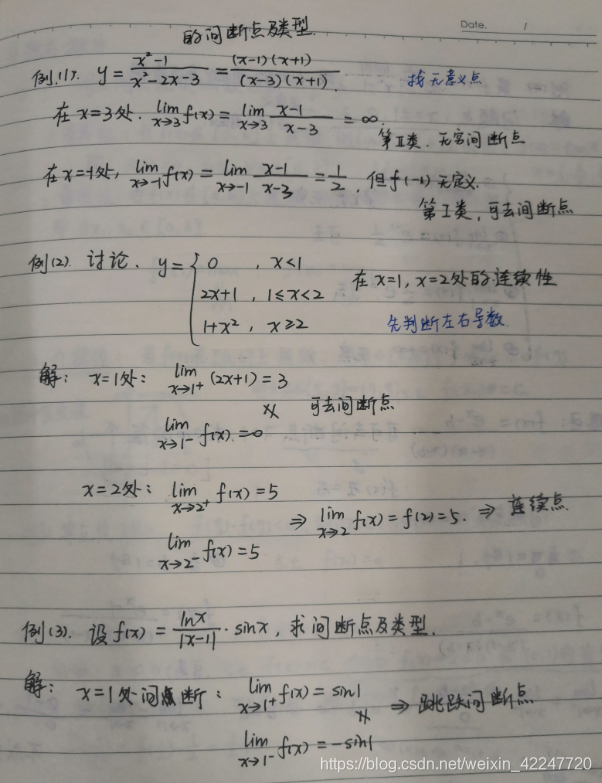 的间断点及类型
Date. /
例.(1). y = \frac{x²-1}{x²-2x-3} = \frac{(x-1)(x+1)}{(x-3)(x+1)}. 找无意义点
在 x=3处. \lim_{x→3} f(x) = \lim_{x→3} \frac{x-1}{x-3} = ∞.
第Ⅱ类. 无穷间断点
在x=-1处, \lim_{x→-1} f(x) = \lim_{x→-1} \frac{x-1}{x-3} = \frac{1}{2}, 但f(-1)无定义.
第Ⅰ类, 可去间断点
例(2). 讨论. y = { 0 , x<1
2x+1 , 1≤x<2 在x=1, x=2处的连续性
1+x² , x≥2 先判断左右导数
解: x=1处: \lim_{x→1⁺} (2x+1) = 3
可去间断点
\lim_{x→1⁻} f(x) = 0
x=2处: \lim_{x→2⁺} f(x) = 5
⇒ \lim_{x→2} f(x) = f(2) = 5. ⇒ 连续点
\lim_{x→2⁻} f(x) = 5
例(3). 设f(x) = \frac{lnx}{|x-1|}·sinx, 求间断点及类型.
解: x=1处间断: \lim_{x→1⁺} f(x) = sin1
⇒ 跳跃间断点
\lim_{x→1⁻} f(x) = -sin1
https://blog.csdn.net/weixin_42247720